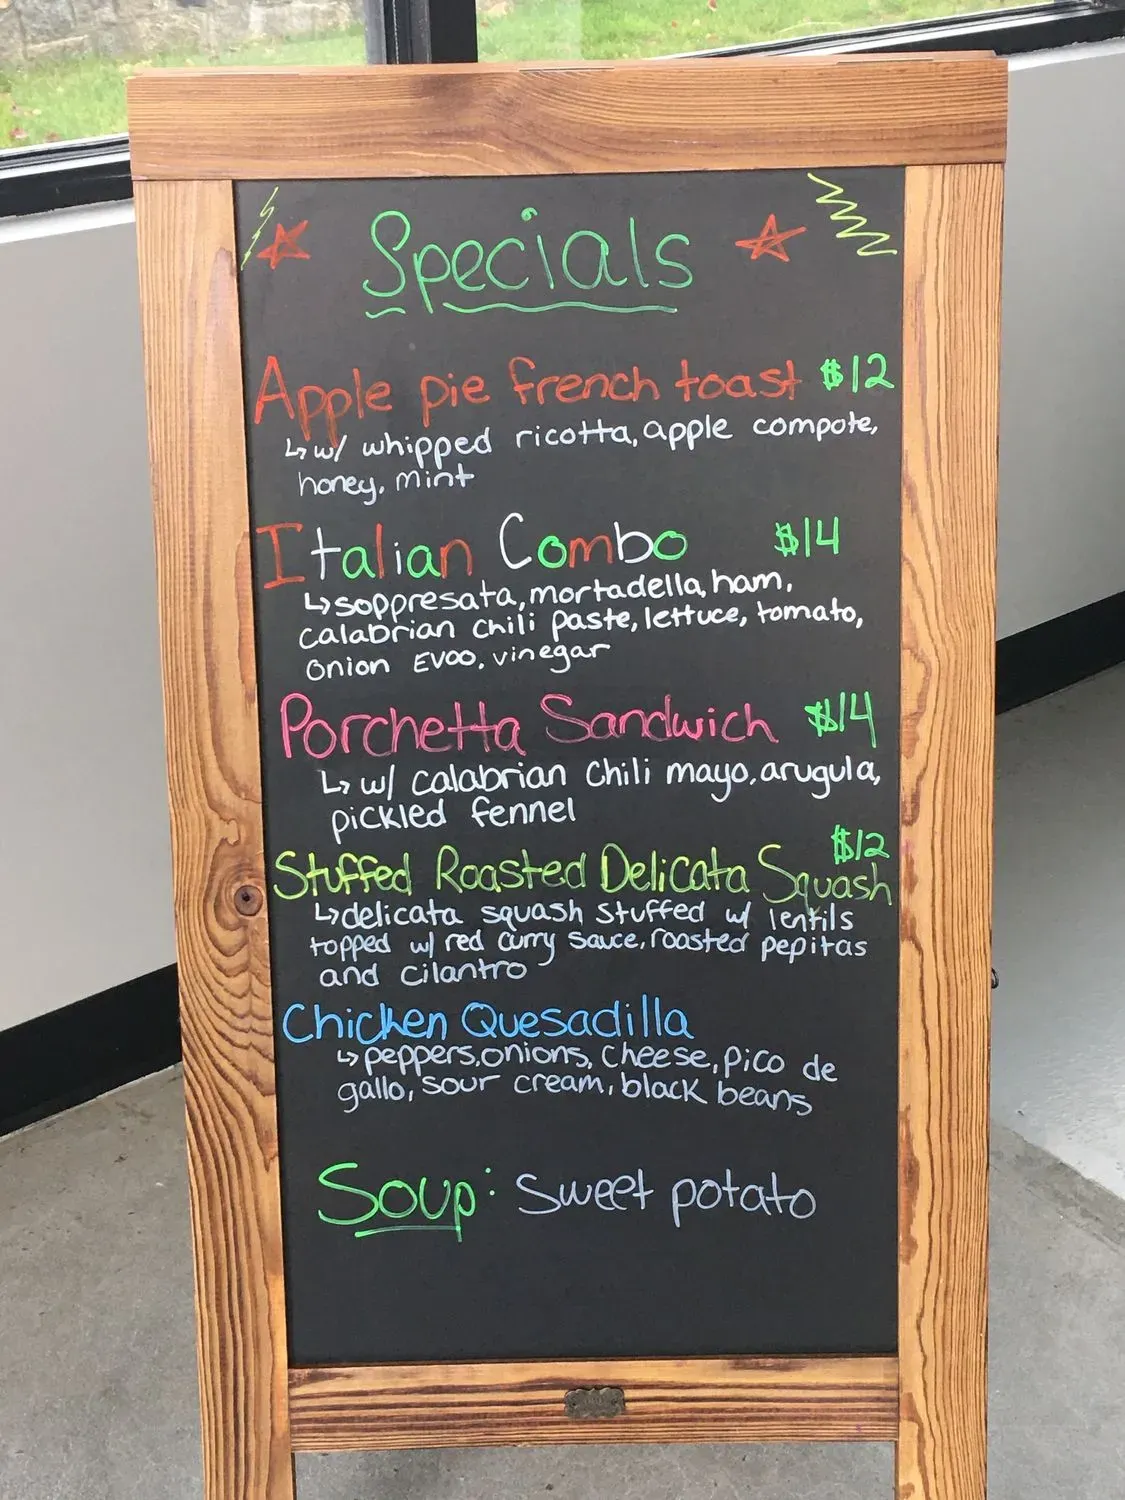 Specials
Apple pie french toast $12
↳ w/ whipped ricotta, apple compote,
honey, mint
Italian Combo $14
↳ soppresata, mortadella, ham,
calabrian chili paste, lettuce, tomato,
onion EVOO, vinegar
Porchetta Sandwich $14
↳ w/ calabrian chili mayo, arugula,
pickled fennel
$12
Stuffed Roasted Delicata Squash
↳ delicata squash stuffed w/ lentils
topped w/ red curry sauce, roasted pepitas
and cilantro
Chicken Quesadilla
↳ peppers, onions, cheese, pico de
gallo, sour cream, black beans
Soup: Sweet potato